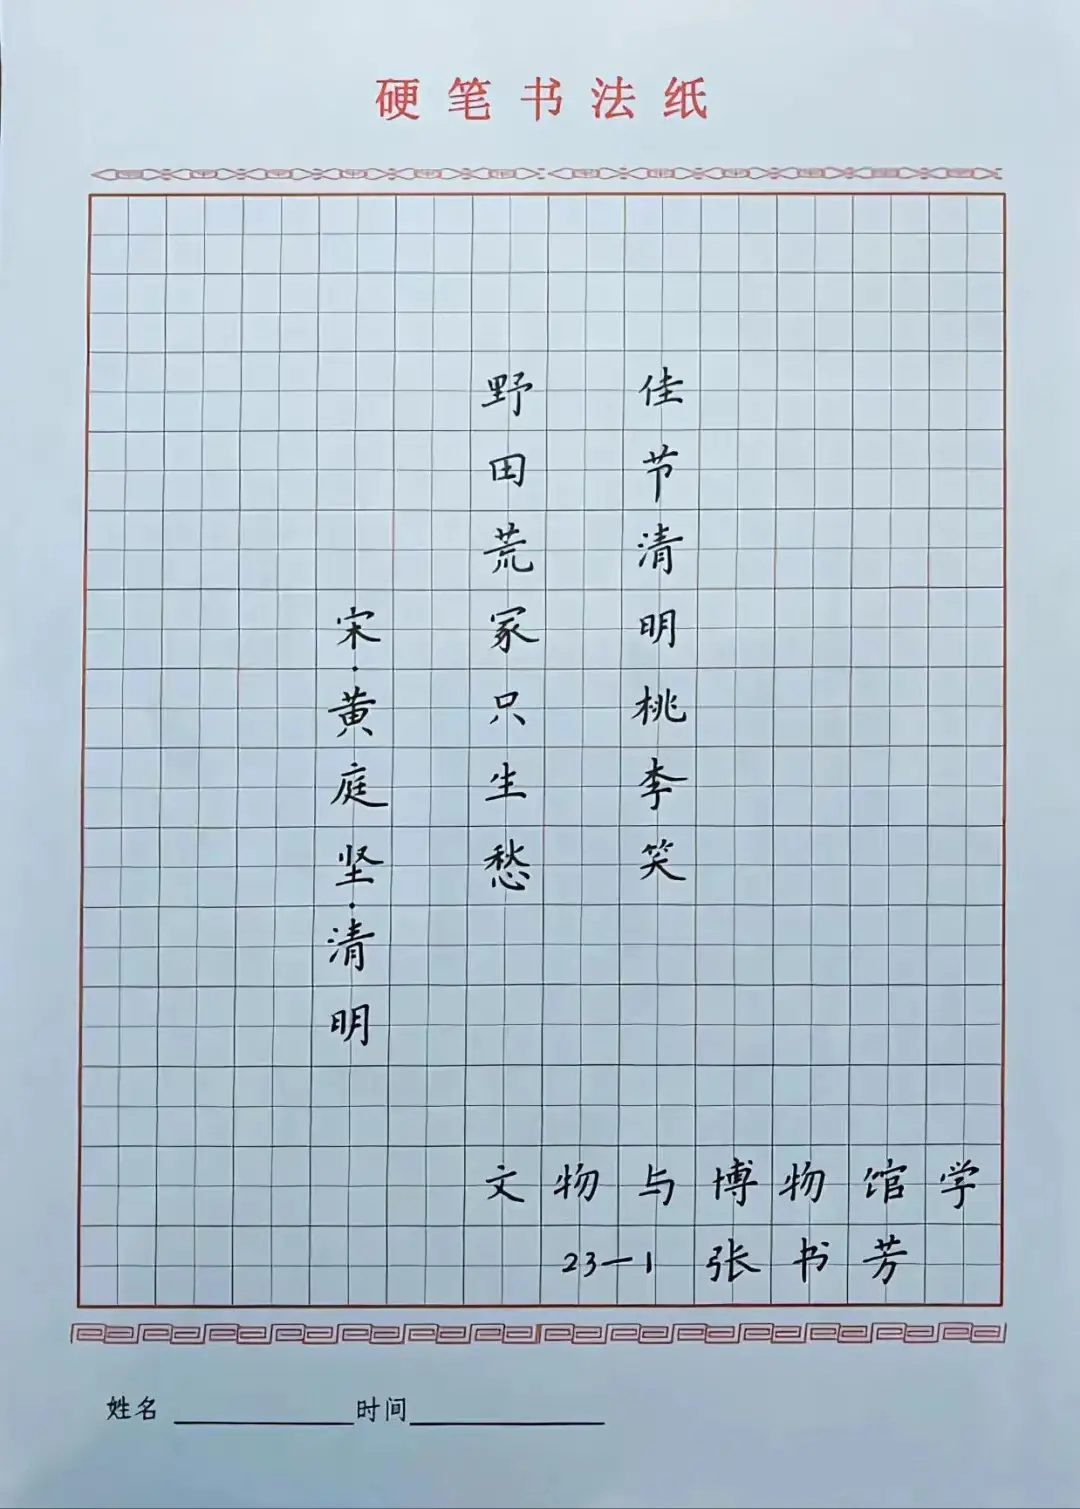 硬笔书法纸
佳节清明桃李笑
野田荒冢只生愁
宋·黄庭坚·清明
文物与博物馆学
23-1 张书芳
姓名 时间